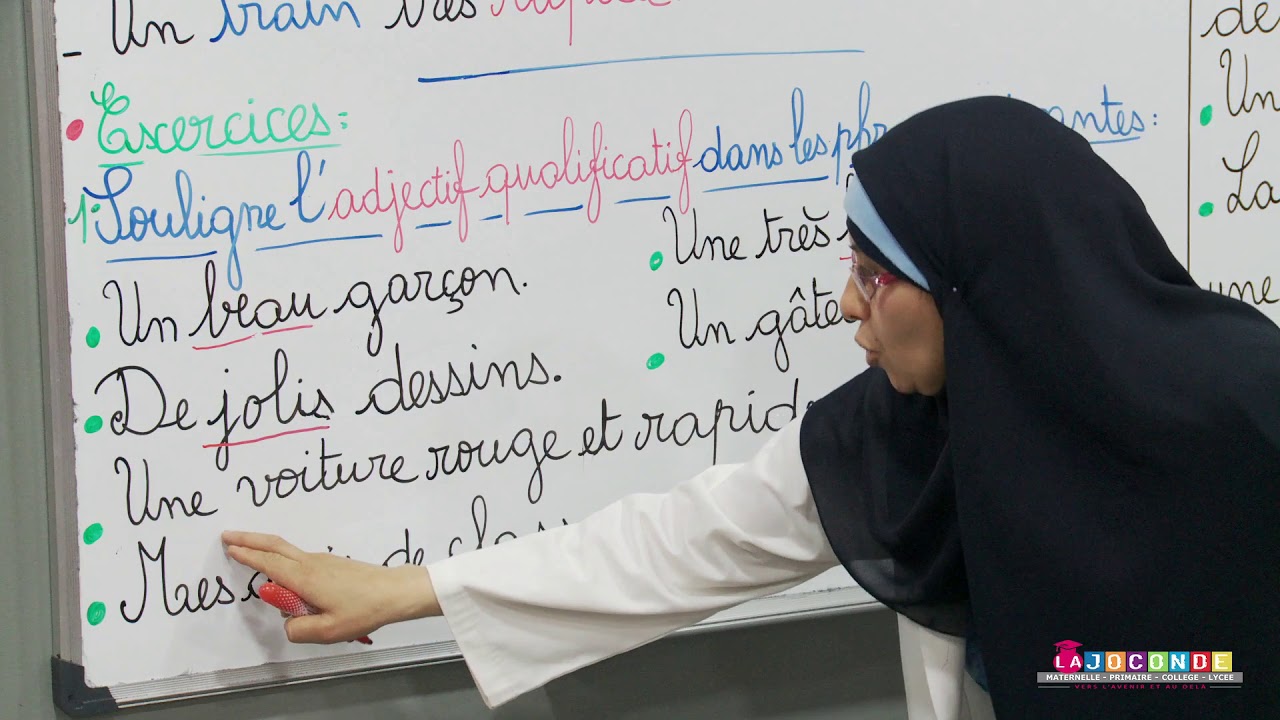 - Un train très
Exercices:
1- Souligne l'adjectif qualificatif dans les
Un beau garçon.
De jolis dessins.
Une voiture rouge et rapide
Mes de
Une très
Un
de
Un
La
une
LA JOCONDE
MATERNELLE - PRIMAIRE - COLLEGE - LYCEE
VERS L'AVENIR ET AU DELÀ